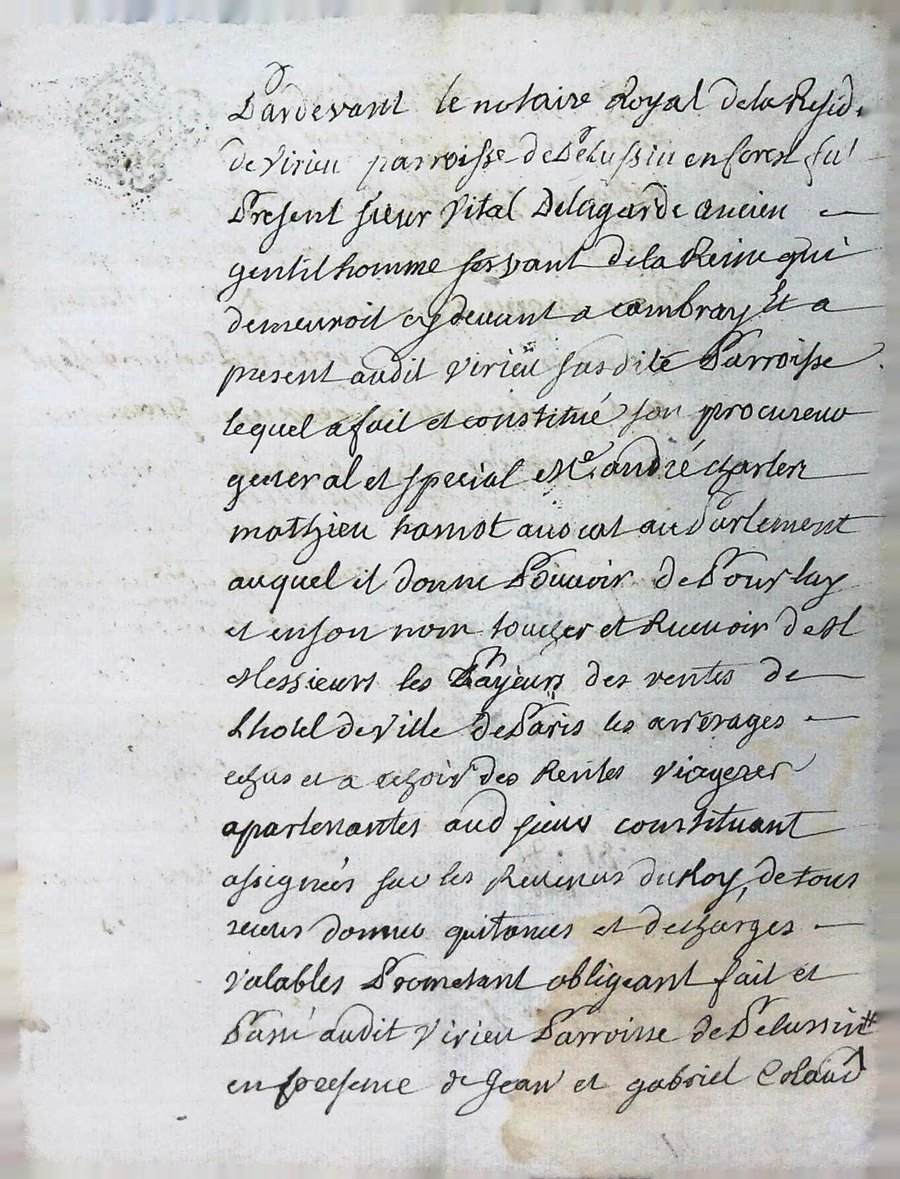 Pardevant le notaire Royal de la Resid.
de Virieu parroisse de Pelussin en forest fut
Present sieur Vital Delagarde ancien
gentilhomme servant de la Reine qui
demeuroit cy devant a cambray Et a
present audit Virieu susdite Parroisse
lequel a fait et constitué son procureur
general et special Me. andré charles
mathieu hamot avocat au Parlement
auquel il donne Pouvoir de Pour luy
et en son nom toucher et Recevoir de M
Messieurs les Payeurs des rentes de
Lhotel de Ville de Paris les arrerages
echus et a echoir des Rentes viageres
apartenantes aud sieur constituant
assignées sur les Revenus du Roy, de tous
receus donner quitances et decharges
valables Prometant obligeant fait et
Passé audit Virieu Parroisse de Pelussin
en presence de Jean et gabriel